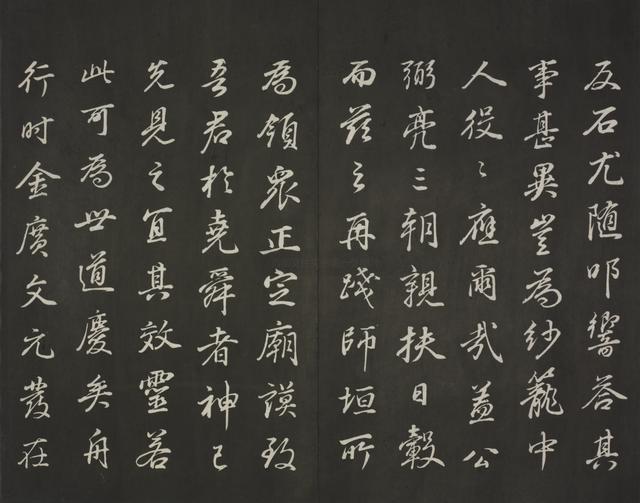 反石尤随叩響答其
事甚異豈為紗籠中
人役々應爾哉蓋公
弼亮三朝親扶日轂
而茲之再踐師垣所
為領眾正定廟謨致
吾君於堯舜者神已
先見之宜其效靈若
此可為世道慶矣舟
行时金廣文元發在